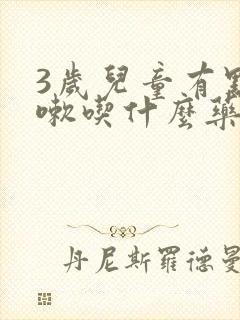 3歲兒童有點
嗽喫什麼藥
丹尼斯羅德曼